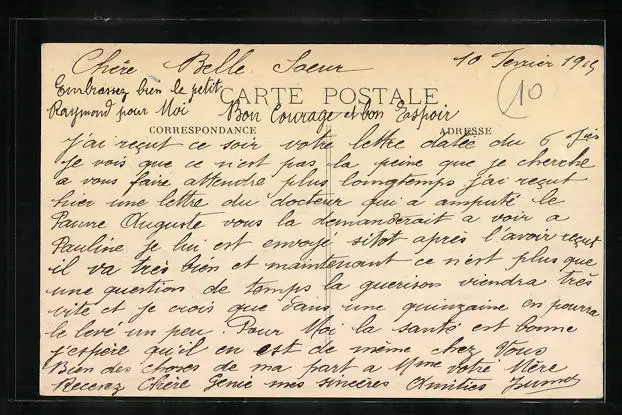 Chère Belle Soeur 10 Fevrier 1915
Embrassez bien le petit
CARTE POSTALE
10
Raymond pour Moi Bon Courage et bon Espoir
CORRESPONDANCE ADRESSE
J'ai reçut ce soir votre lettre datée du 6
Je vois que ce n'est pas la peine que je cherche
a vous faire attendre plus longtemps j'ai reçut
hier une lettre du docteur qui a amputé le
Pauvre Auguste vous la demanderait a voir a
Pauline je lui est envoyé sitot après l'avoir reçut
il va très bien et maintenant ce n'est plus que
une question de temps la guerison viendra très
vite et je crois que dans une quinzaine on pourra
le levé un peu. Pour Moi la santé est bonne
j'espère qu'il en est de même chez Vous
Bien des choses de ma part a Mme votre Mère
Recevez Chère Génie mes sincères Amitiés